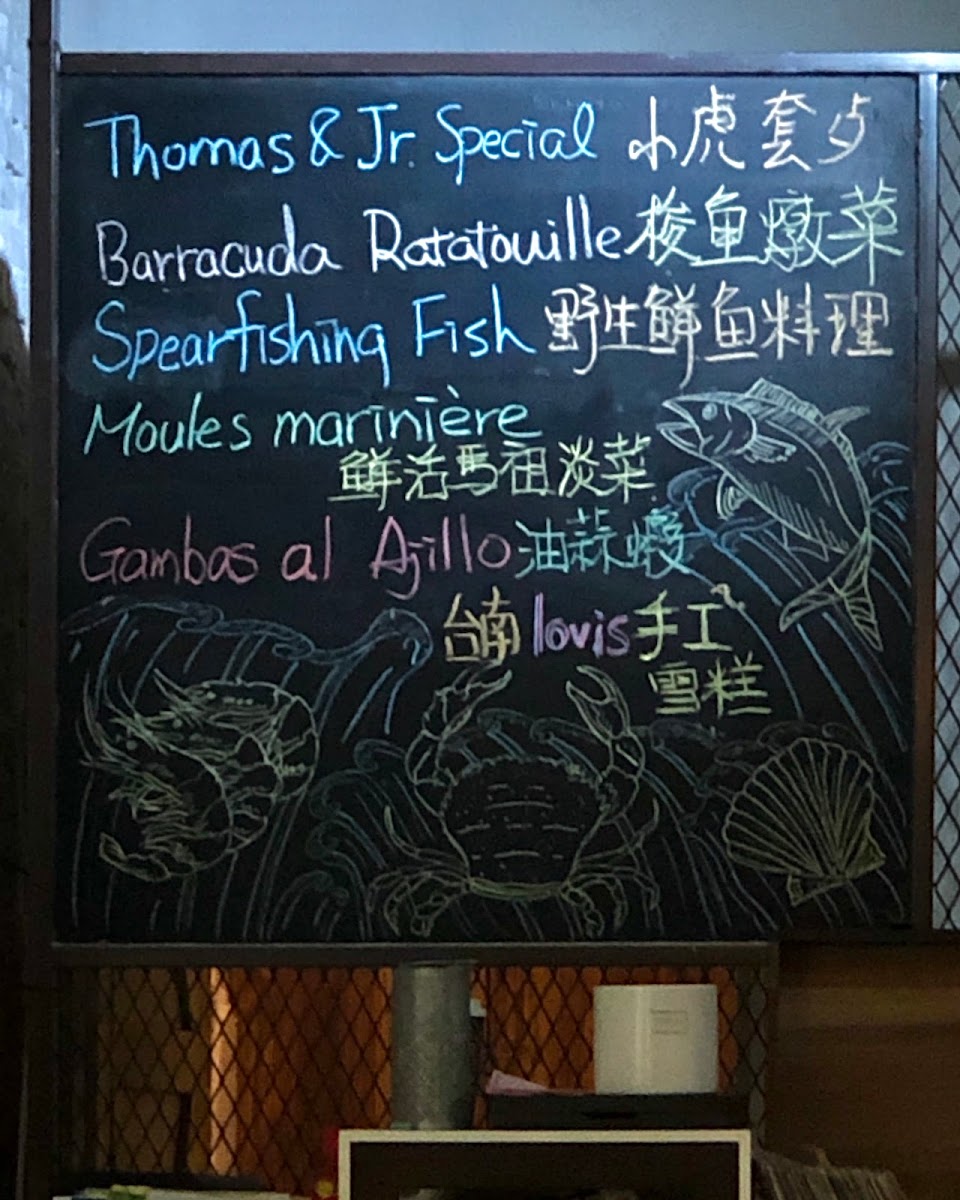 Thomas & Jr. Special 小虎套歺
Barracuda Ratatouille 梭鱼燉菜
Spearfishing Fish 野生鲜鱼料理
Moules marinière
鲜活馬祖淡菜
Gambas al Ajillo 油蒜蝦
台南 lovis 手工
雪糕